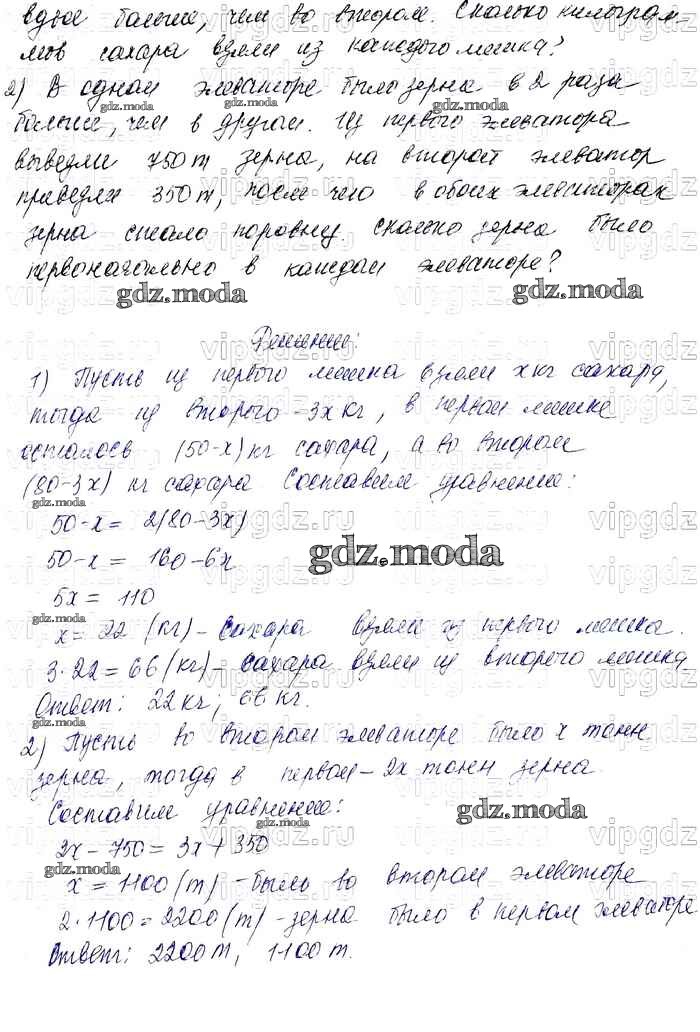 вдвое больше, чем во втором. Сколько килограм-
мов сахара взяли из каждого мешка?
2) В одном элеваторе было зерна в 2 раза
больше, чем в другом. Из первого элеватора
вывезли 750 т зерна, на второй элеватор
привезли 350 т, после чего в обоих элеваторах
зерна стало поровну. Сколько зерна было
первоначально в каждом элеваторе?
gdz.moda
Решение:
1) Пусть из первого мешка взяли x кг сахара,
тогда из второго - 3x кг, в первом мешке
осталось (50-x) кг сахара, а во втором
(80-3x) кг сахара Составим уравнение:
50-x = 2(80-3x)
50-x = 160-6x
gdz.moda
5x = 110
x = 22 (кг) - сахара взяли из первого мешка.
3·22 = 66 (кг) - сахара взяли из второго мешка
Ответ: 22 кг; 66 кг.
2) Пусть во втором элеваторе было x тонн
зерна, тогда в первом - 2x тонн зерна
Составим уравнение:
gdz.moda
2x - 750 = 3x + 350
x = 1100 (т) - было во втором элеваторе
2·1100 = 2200 (т) - зерна было в первом элеваторе
Ответ: 2200 т, 1100 т.